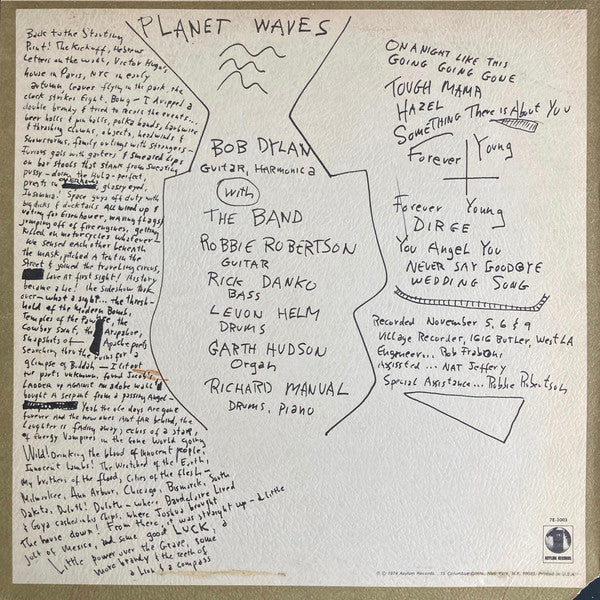 PLANET WAVES
Back to the Starting
Point! The Kickoff, Hebrew
Letters on the wall, Victor Hugo's
house in Paris, NYC in early
autumn, leaves flying in the park, the
clock strikes Eight. Bong - I dropped a
double brandy & tried to recall the events...
beer halls & pin balls, polka bands, barbwire
& thrashing clowns, objects, headwinds &
snowstorms, family outings with strangers -
Furious gals with garters & smeared lips
on bar stools that stank from sweating
pussy - doing the Hula - perfect
priests in overhauls, glassy eyed,
Insomnia! Space guys off duty with
big dicks & ducktails All wired up &
voting for Eisenhower, waving flags &
jumping off of fire engines, getting
killed on motorcycles whatever -
We sensed each other beneath
the mask, pitched a tent in the
Street & joined the traveling circus,
Love at first sight! History
became a Lie! the sideshow took
over - what a sight... the thresh-
hold of the Modern Bomb,
Temples of the Pawnee, the
Cowboy Saint, the Arapahoe,
snapshots of Apache poets
Searching thru the ruins for a
glimpse of Buddah - I lit out
for parts unknown, found Jacob's
Ladder up against an adobe wall &
bought a serpent from a passing Angel -
Yeah the ole days are gone
forever And the new ones Ant far behind, the
Laughter is fading away, echos of a star,
of Energy Vampires in the Gone World going
Wild! Drinking the blood of innocent people,
Innocent Lambs! The Wretched of the Earth,
My brothers of the flood, Cities of the flesh -
Milwaukee, Ann Arbor, Chicago, Bismarck, South
Dakota, Duluth! Duluth - where Baudelaire Lived
& Goya cashed in his Chips, where Joshua brought
The house down! From there, it was straight up - a little
jolt of Mexico, and some good LUCK, a
Little power over the Grave, some
more brandy & the teeth of
a Lion & a compass
BOB DYLAN
Guitar, Harmonica
with
THE BAND
ROBBIE ROBERTSON
GUITAR
RICK DANKO
BASS
LEVON HELM
DRUMS
GARTH HUDSON
Organ
RICHARD MANUAL
DRUMS, PIANO
ON A NIGHT LIKE THIS
GOING GOING GONE
TOUGH MAMA
HAZEL
SOMETHING There is About You
Forever Young
Forever Young
DIRGE
You Angel You
NEVER SAY GOODBYE
WEDDING SONG
Recorded November 5, 6 & 9
Village Recorder, 1616 Butler, West LA
Engineer... Rob Fraboni
Assisted... NAT Jeffery
Special Assistance... Robbie Robertson
7E-1003
ASYLUM RECORDS
© 1974 Asylum Records. 15 Columbus Circle, New York, N.Y. 10023. Printed in U.S.A.